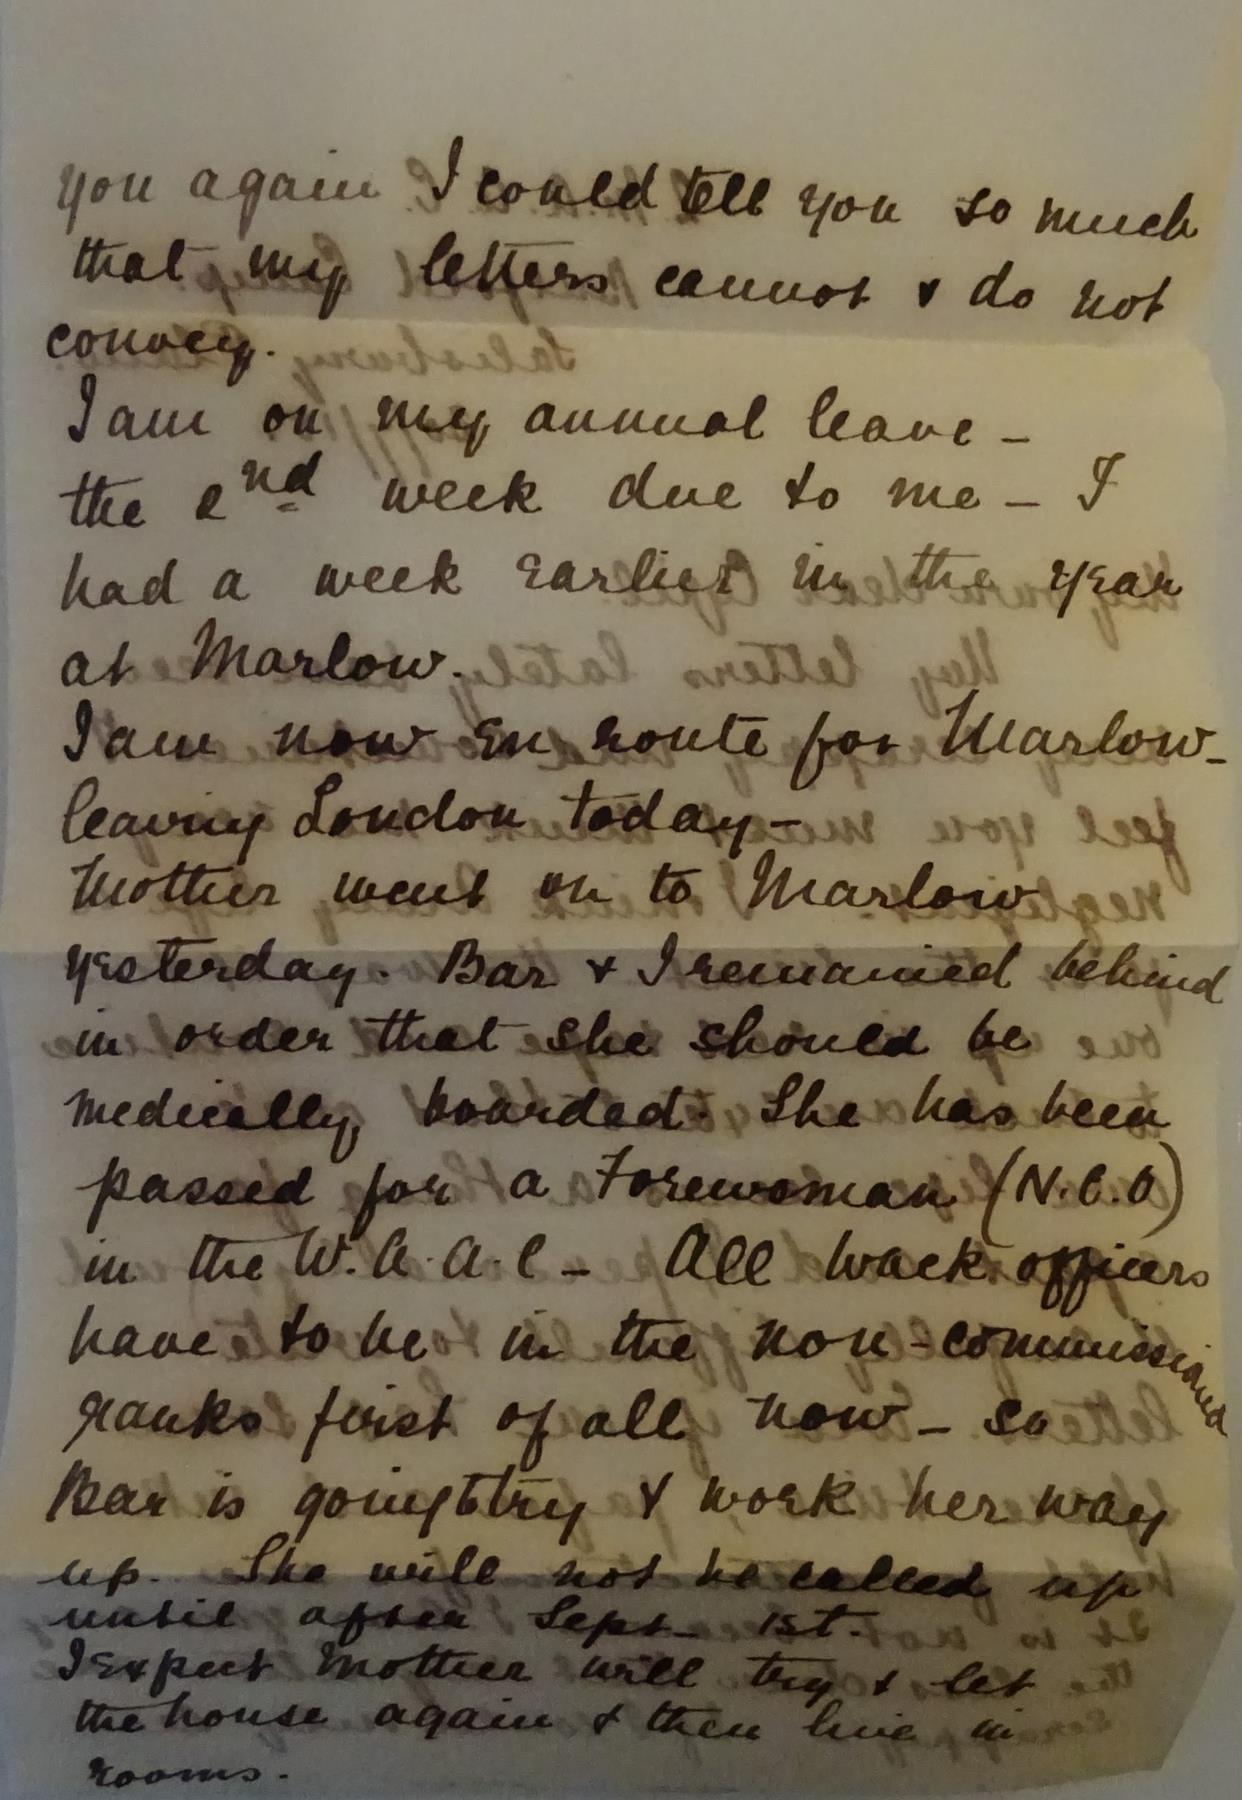 you again I could tell you so much
that my letters cannot & do not
convey.
I am on my annual leave –
the 2nd week due to me – I
had a week earlier in the year
at Marlow.
I am now en route for Marlow –
leaving London today –
Mother went on to Marlow
yesterday. Bar & I remained behind
in order that she should be
medically boarded. She has been
passed for a Forewoman (N.C.O)
in the W.A.A.C – All Waack officers
have to be in the non-commissioned
ranks first of all now – so
Bar is going to try & work her way
up. She will not be called up
until after Sept. 1st.
I expect Mother will try & let
the house again & then live in
rooms.